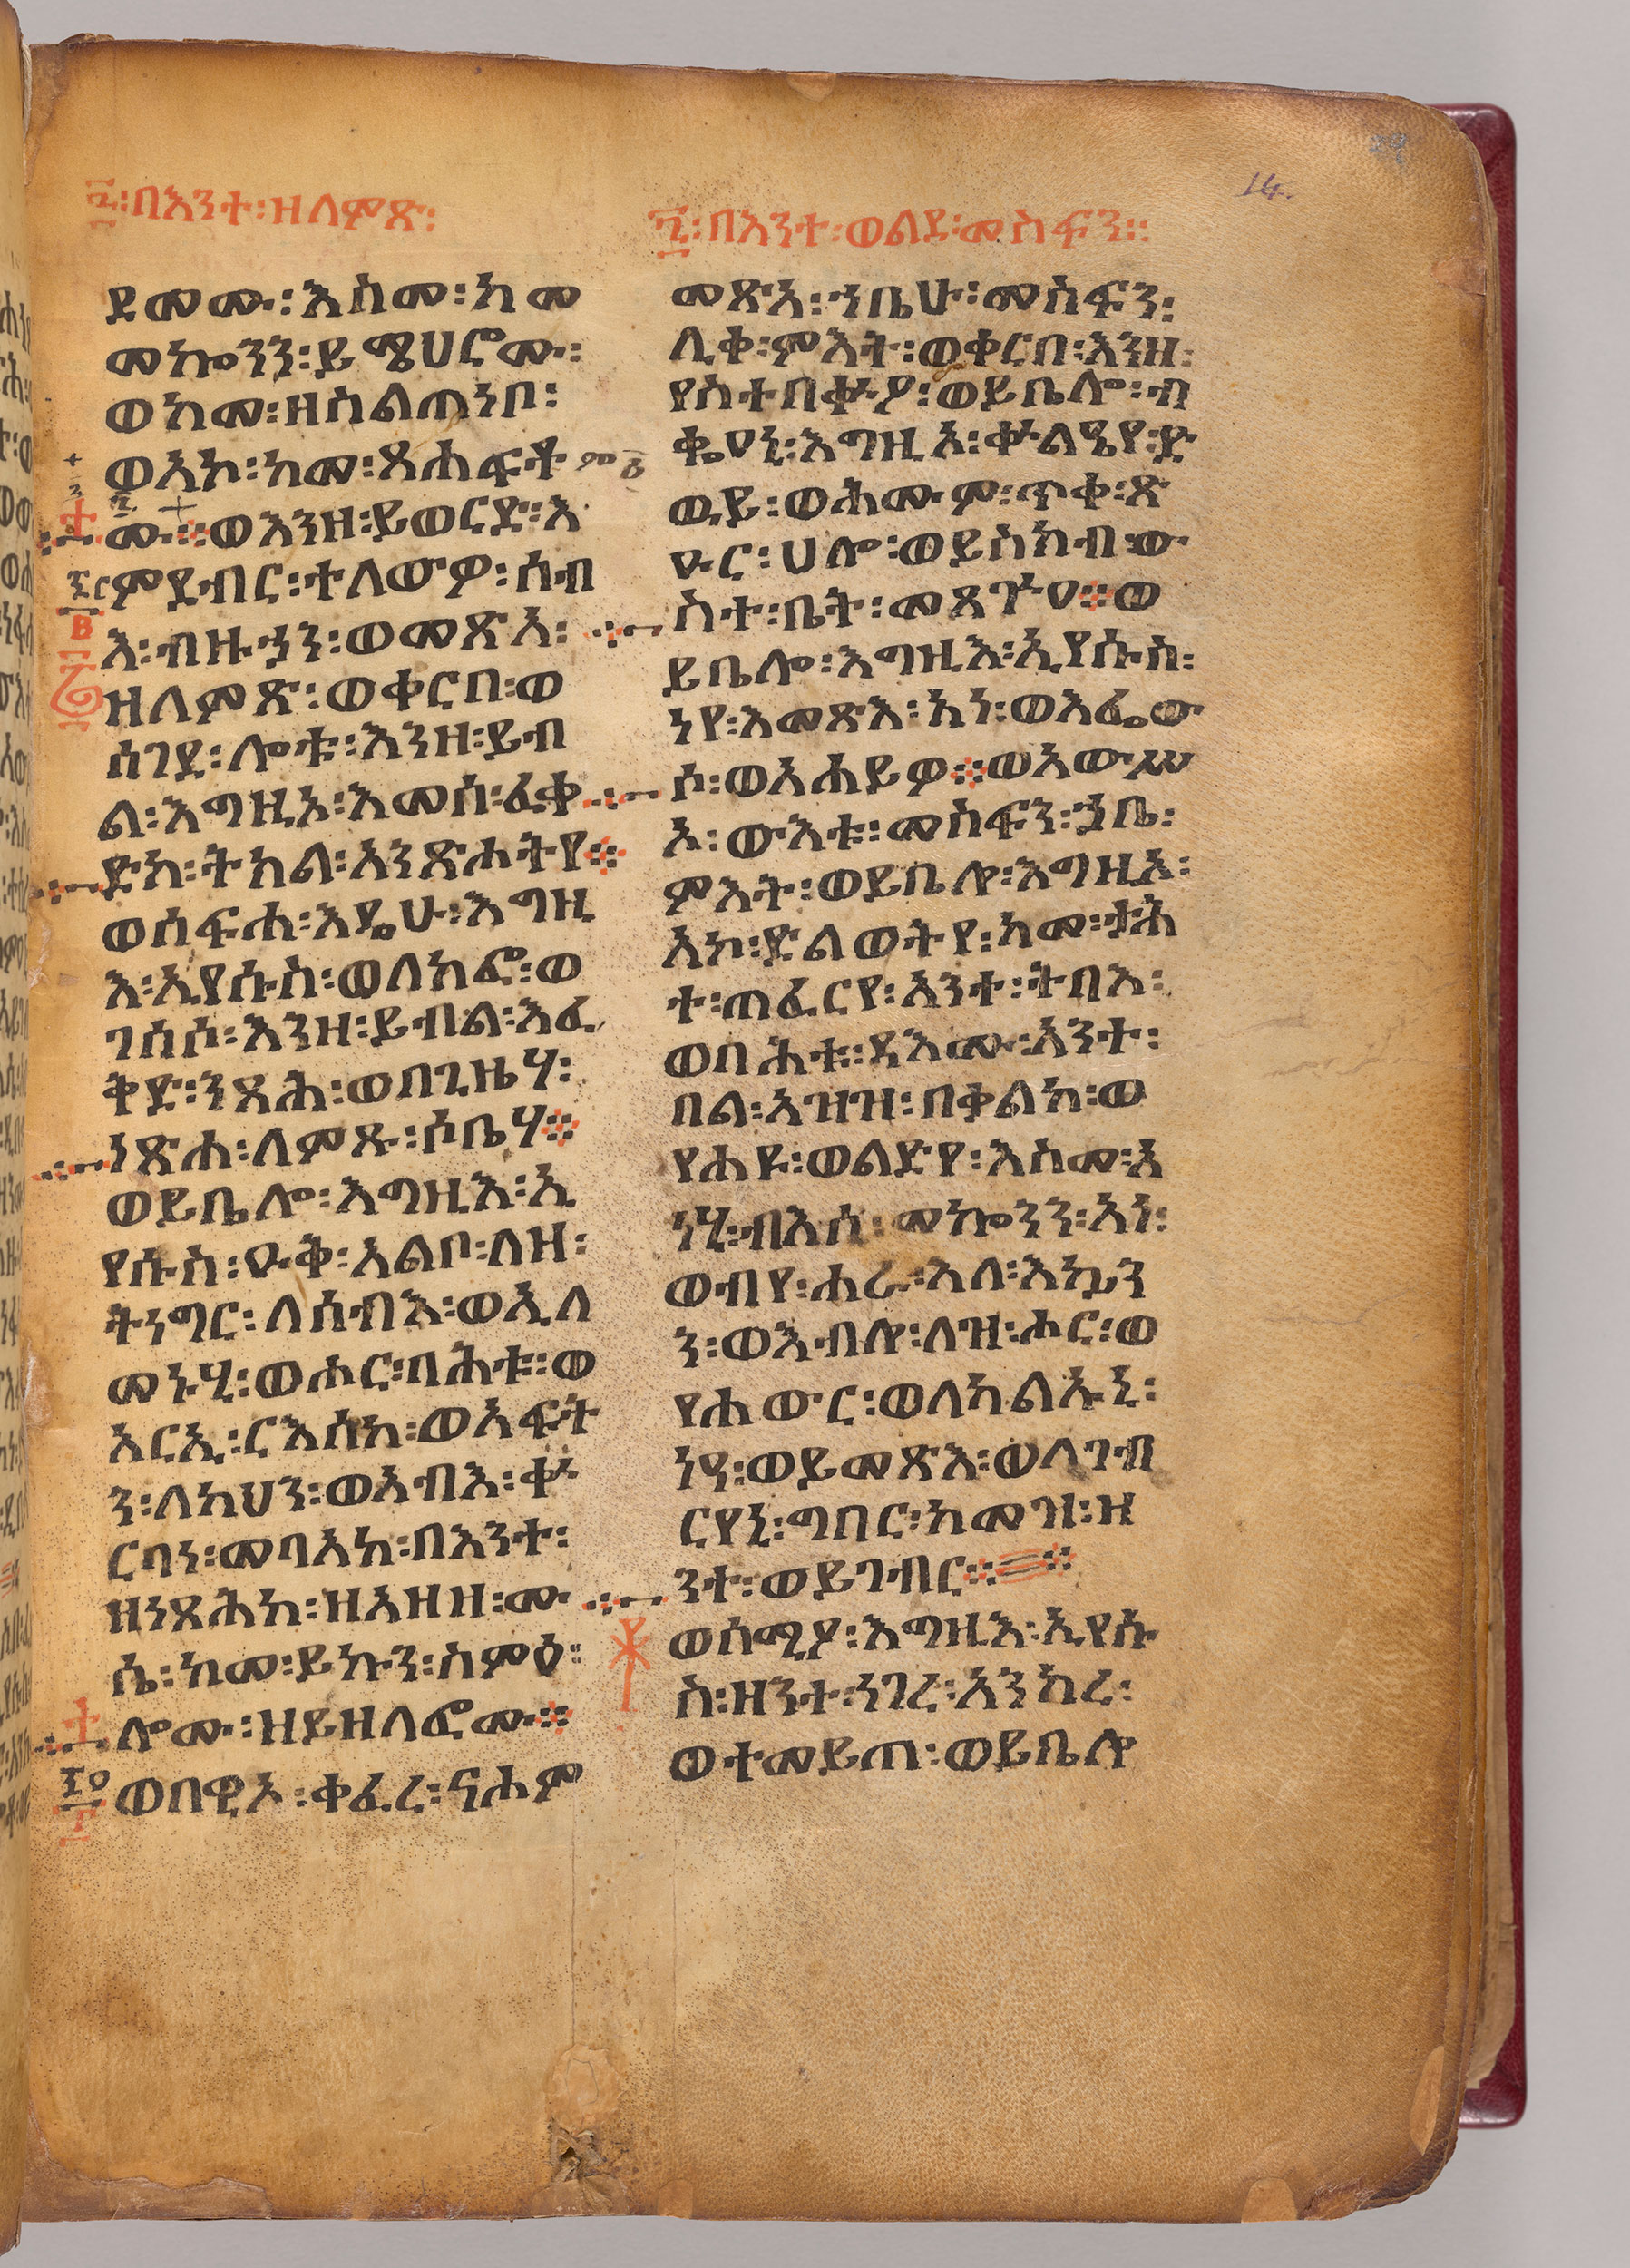 ፮፡በእንተ፡ዘለምጽ፡
ደመሙ፡እስመ፡ከመ
መኰንን፡ይሜህሮሙ፡
ወከመ፡ዘስልጠነቦ፡
ወአኮ፡ከመ፡ጸሐፍቶ
ሙ፨ወእንዘ፡ይወርድ፡እ
ምደብር፡ተለውዎ፡ሰብ
እ፡ብዙኃን፡ወመጽአ፡
ዘለምጽ፡ወቀርበ፡ወ
ሰገደ፡ሎቱ፡እንዘ፡ይብ
ል፡እግዚኦ፡እመሰ፡ፈቀ
ድከ፡ትክል፡አንጽሖትየ፨
ወሰፍሐ፡እዴሁ፡እግዚ
እ፡ኢየሱስ፡ወለከፎ፡ወ
ገሰሶ፡እንዘ፡ይብል፡እፈ
ቅድ፡ንጻሕ፡ወበጊዜሃ፡
ነጽሐ፡ለምጹ፡ሶቤሃ፨
ወይቤሎ፡እግዚእ፡ኢ
የሱስ፡ዑቅ፡አልቦ፡ለዘ፡
ትነግር፡ለሰብእ፡ወኢለ
መኑሂ፡ወሖር፡ባሕቱ፡ወ
አርኢ፡ርእሰከ፡ወአፍት
ን፡ለካህን፡ወአብእ፡ቍ
ርባነ፡መባአከ፡በእንተ፡
ዘነጻሕከ፡ዝአዘዘ፡ሙ
ሴ፡ከመ፡ይኩን፡ስምዕ፡
ሎሙ፡ዝይዘለፎሙ፨
ወበዊኦ፡ቀፈረ፡ናሖም
፯፡በእንተ፡ወልደ፡መስፍን፡፡
መጽአ፡ኀቤሁ፡መስፍን፡
ሊቀ፡ምእት፡ወቀርበ፡እንዘ፡
የስተበቍዖ፡ወይቤሎ፡ብ
ቈዐኒ፡እግዚኦ፡ቍልዔየ፡ድ
ዉይ፡ወሕሙም፡ጥቀ፡ጽ
ዑር፡ሀሎ፡ወይስክብ፡ው
ስተ፡ቤት፡መጻጉዐ፨ወ
ይቤሎ፡እግዚእ፡ኢየሱስ፡
ነየ፡እመጽእ፡አነ፡ወእፌው
ሶ፡ወአሐይዎ፨ወአውሥ
አ፡ውእቱ፡መስፍን፡ኃቤ፡
ምእት፡ወይቤሎ፡እግዚኦ፡
አኮ፡ድልወትየ፡ከመ፡ታሕ
ተ፡ጠፈርየ፡አንተ፡ትባእ፡
ወባሕቱ፡ዳእሙ፡አንተ፡
በል፡አዝዝ፡በቃልከ፡ወ
የሐዩ፡ወልድየ፡እስመ፡አ
ነሂ፡ብእሲ፡መኰንን፡አነ፡
ወብየ፡ሐራ፡እለ፡እኴን
ን፡ወእብሎ፡ለዝ፡ሖር፡ወ
የሐውር፡ወለካልኡኒ፡
ነዓ፡ወይመጽእ፡ወለገብ
ርየኒ፡ግበር፡ከመዝ፡ዘ
ንተ፡ወይገብር፨=፨
ወሰሚዖ፡እግዚእ፡ኢየሱ
ስ፡ዘንተ፡ነገረ፡አንከረ፡
ወተመይጠ፡ወይቤሎ
14.